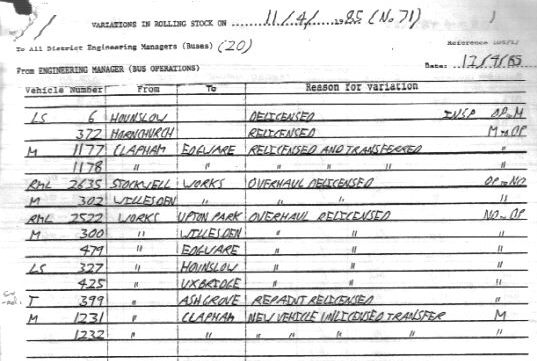 VARIATIONS IN ROLLING STOCK ON 11/4/1985 (No 71) 1
To All District Engineering Managers (Buses) (20) Reference
From ENGINEERING MANAGER (BUS OPERATIONS) Date: 12/4/85
Vehicle Number From To Reason for variation
LS 6 HOUNSLOW DELICENSED INSP OP to M
372 HORNCHURCH RELICENSED M to OP
M 1177 CLAPHAM EDGWARE RELICENSED AND TRANSFERRED "
1178 " " " " " "
RML 2635 STOCKWELL WORKS OVERHAUL DELICENSED OP to NO
M 302 WILLESDEN " " " "
RML 2522 WORKS UPTON PARK OVERHAUL RELICENSED NO to OP
M 300 " WILLESDEN " " "
479 " EDGWARE " " "
LS 327 " HOUNSLOW " " "
425 " UXBRIDGE " " "
T 399 " ASH GROVE REPAINT RELICENSED "
M 1231 " CLAPHAM NEW VEHICLE UNLICENSED TRANSFER M
1232 " " " " " " "